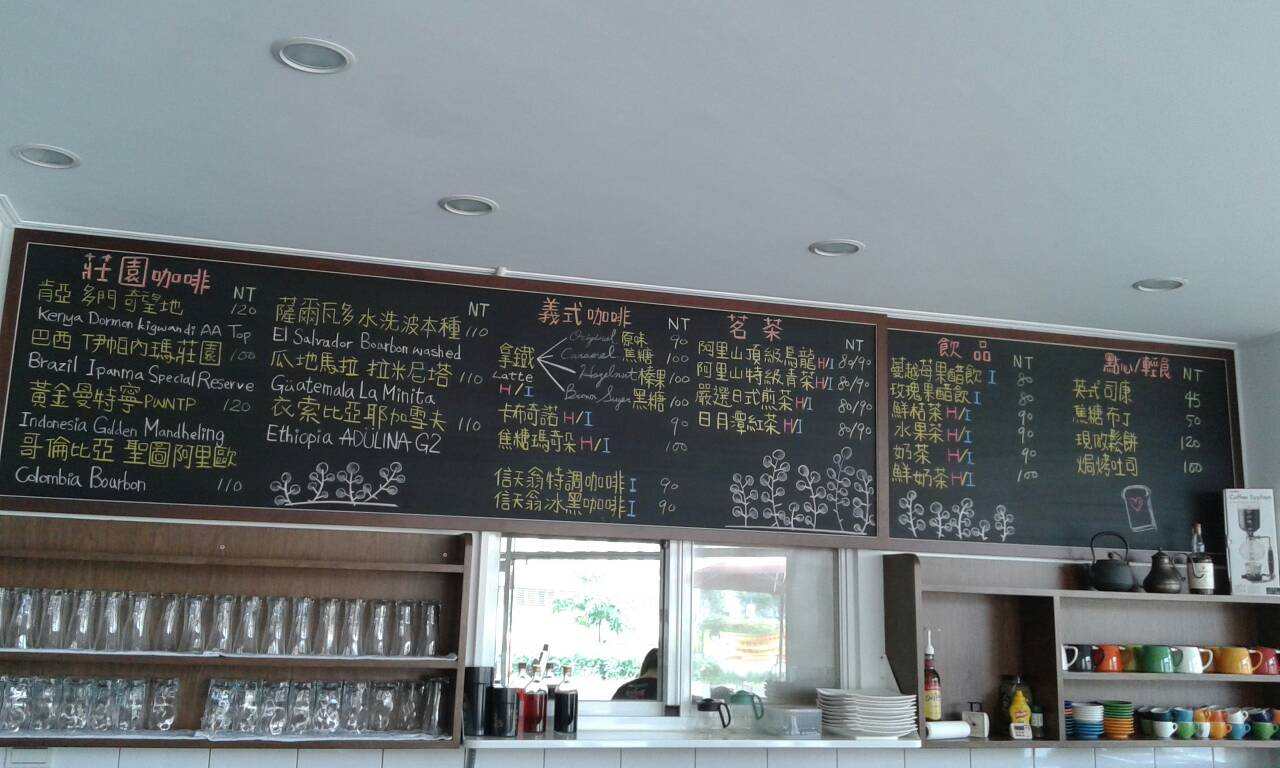 莊園咖啡 NT
肯亞 多門 奇望地 120
Kenya Dorman kigwandi AA Top
巴西 伊帕內瑪莊園 100
Brazil Ipanma Special Reserve
黃金曼特寧 PWNTP 120
Indonesia Golden Mandheling
哥倫比亞 聖圖阿里歐
Colombia Bourbon 110
NT
薩爾瓦多水洗波本種 110
El Salvador Bourbon washed
瓜地馬拉 拉米尼塔 110
Guatemala La Minita
衣索比亞耶加雪夫 110
Ethiopia ADULINA G2
義式咖啡 NT
拿鐵 Latte H/I
Original 原味 90
Caramel 焦糖 100
Hazelnut 榛果 100
Brown Sugar 黑糖 100
卡布奇諾 H/I 90
焦糖瑪奇朵 H/I 100
信天翁特調咖啡 I 90
信天翁冰黑咖啡 I 90
茗茶 NT
阿里山頂級烏龍 H/I 80/90
阿里山特級青茶 H/I 80/90
嚴選日式煎茶 H/I 80/90
日月潭紅茶 H/I 80/90
飲品 NT
蔓越莓果醋飲 I 80
玫瑰果醋飲 I 80
鮮桔茶 H/I 90
水果茶 H/I 90
奶茶 H/I 90
鮮奶茶 H/I 100
點心/輕食 NT
英式司康 45
焦糖布丁 50
現做鬆餅 120
焗烤吐司 100
Coffee Syphon